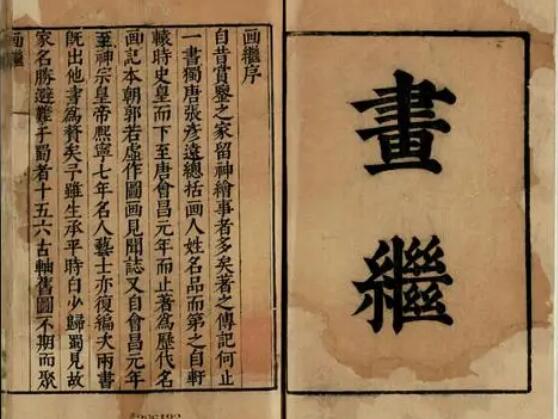 畫繼
画繼序
自昔賞鑒之家留神繪事者多矣著之傳記何止
一書獨唐張彥遠總括画人姓名品而第之自軒
轅時史皇而下至唐會昌元年而止著爲歷代名
画記本朝郭若虛作圖画見聞誌又自會昌元年
至神宗皇帝熙寧七年名人藝士亦復編次兩書
既出他書爲贅矣予雖生承平時自少歸蜀見故
家名勝避難于蜀者十五六古軸舊圖不期而聚
画繼